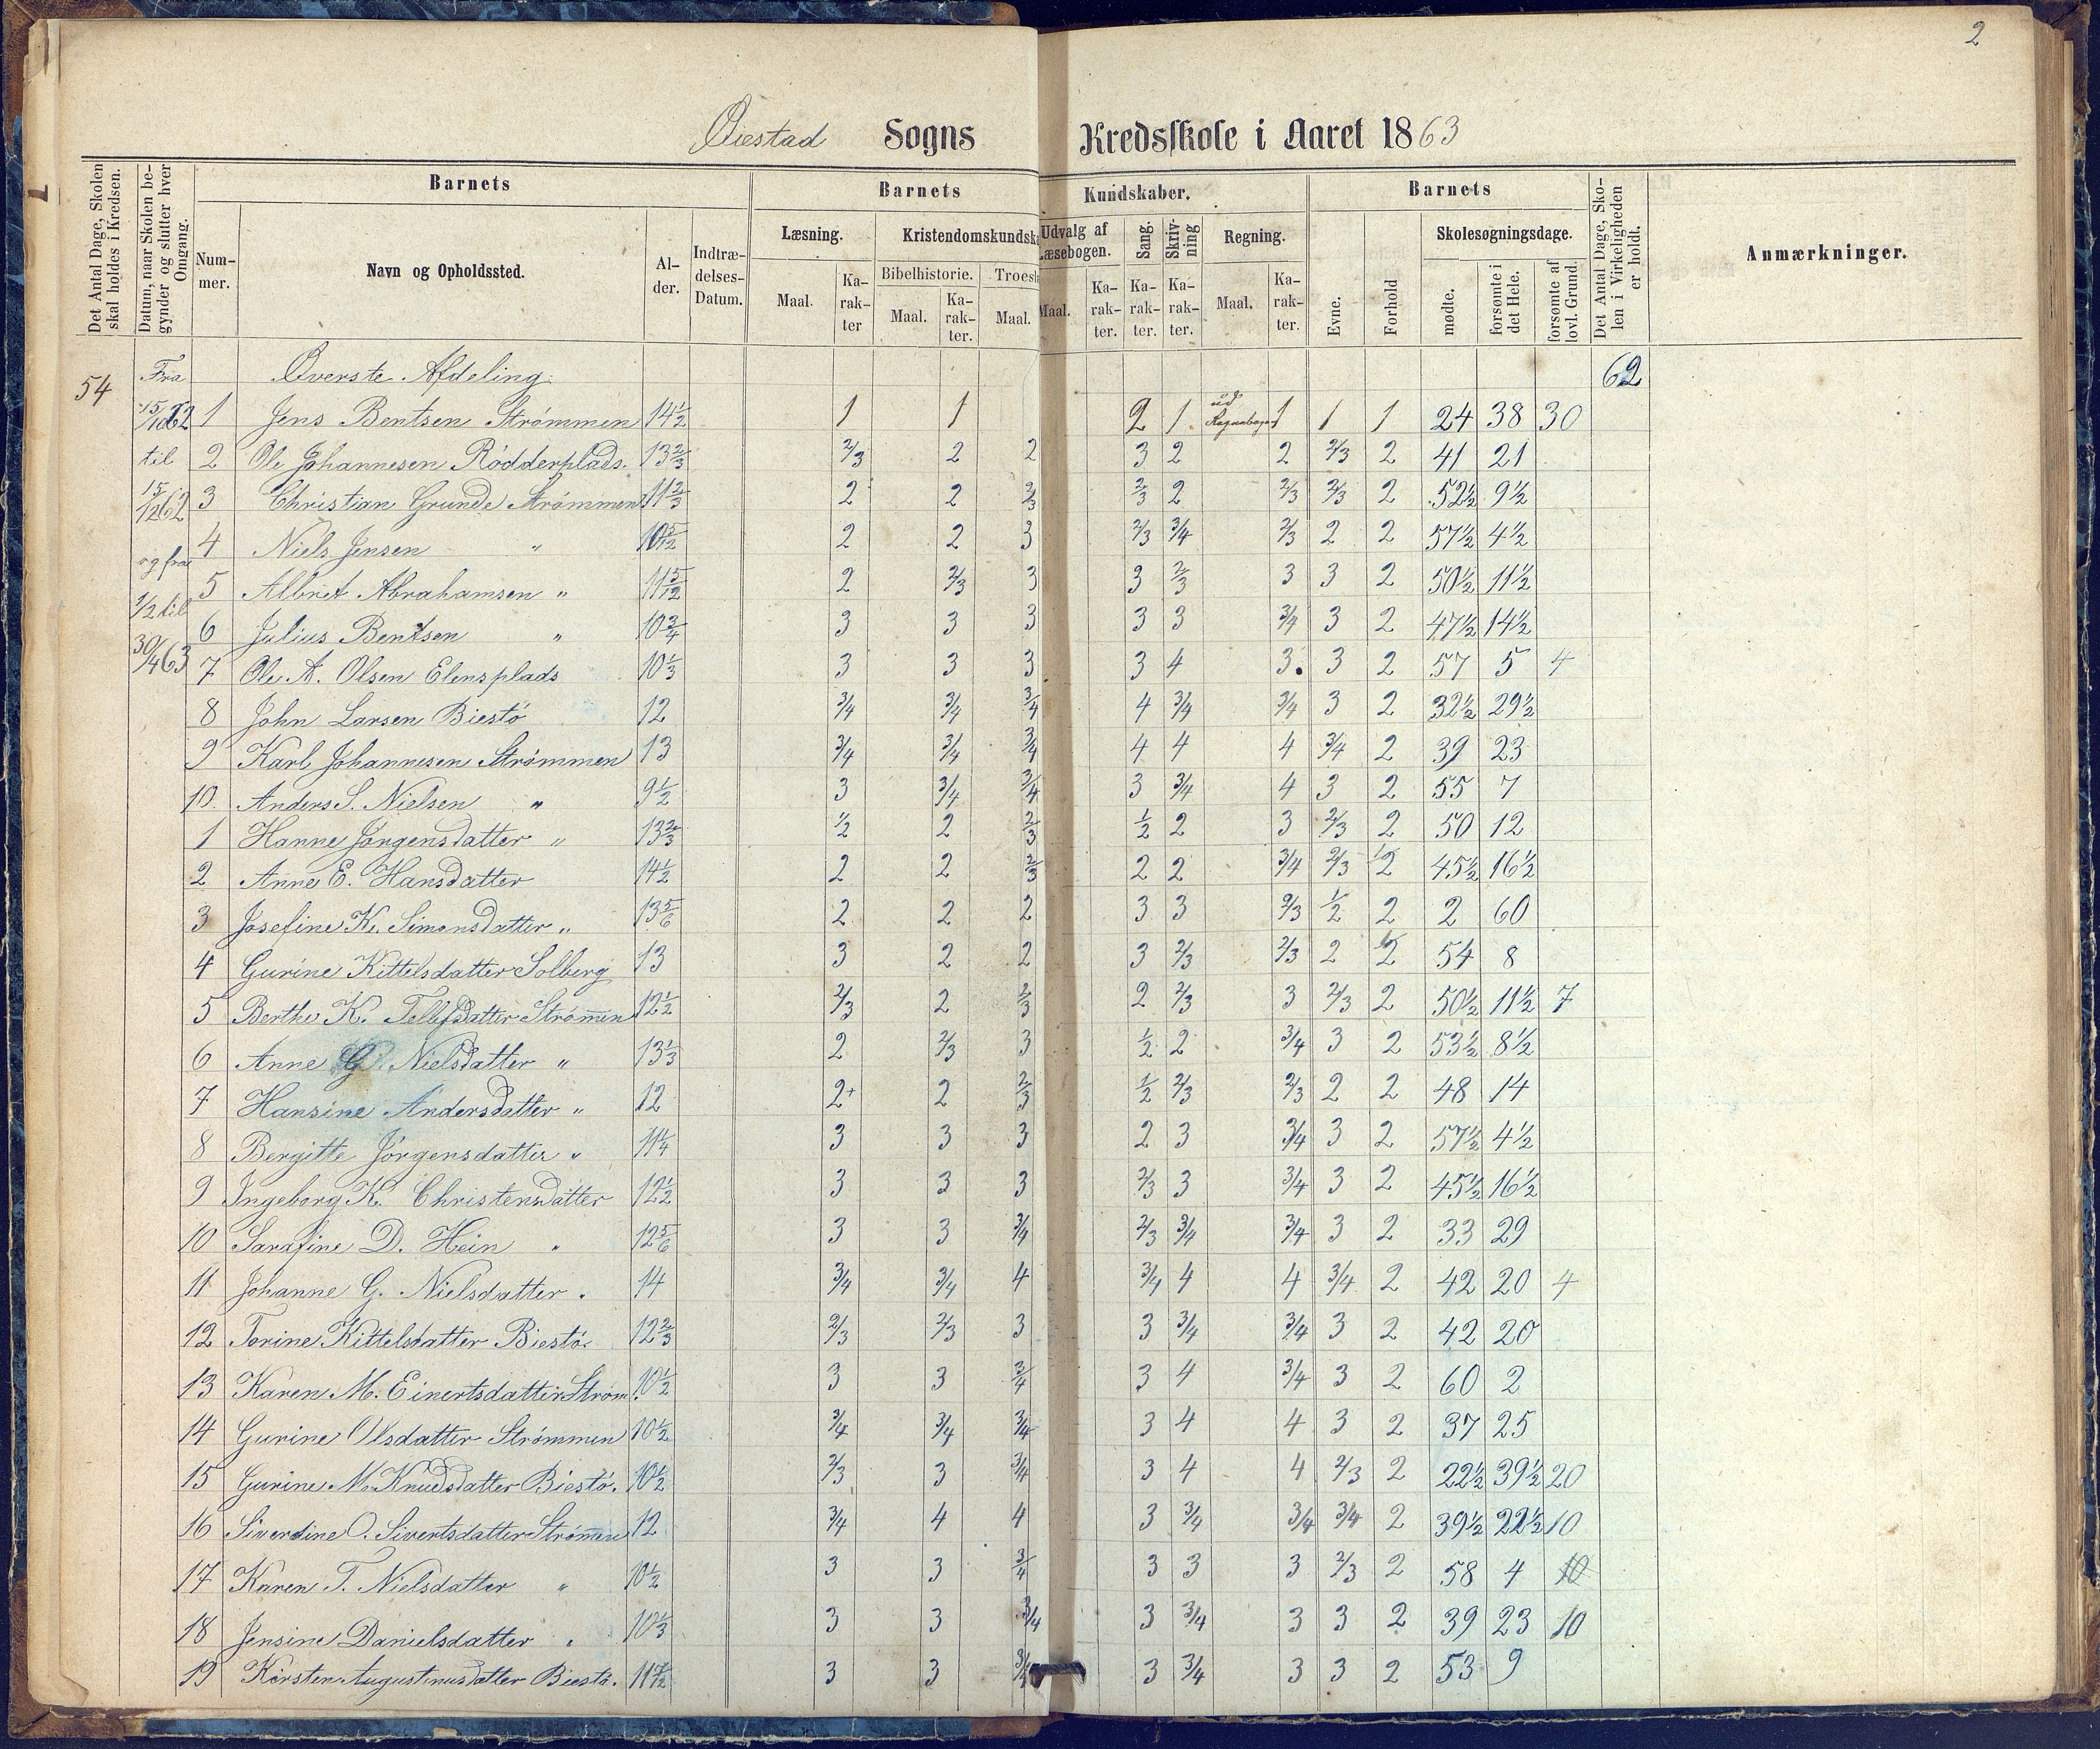 2
Øiestad Sogns Kredsskole i Aaret 1863
Det Antal Dage, Skolen skal holdes i Kredsen.
Datum, naar Skolen begynder og slutter hver Omgang.
Barnets
Nummer.
Navn og Opholdssted.
Alder.
Indtrædelses-Datum.
Barnets Kundskaber.
Læsning.
Maal.
Karakter
Kristendomskundsk
Bibelhistorie.
Maal.
Karakter.
Troesl
Maal.
Udvalg af Læsebogen.
Maal.
Karakter.
Sang.
Karakter.
Skrivning
Karakter.
Regning.
Maal.
Karakter.
Barnets
Evne.
Forhold
Skolesøgningsdage.
mødte.
forsømte i det Hele.
forsømte af lovl. Grund.
Det Antal Dage, Skolen i Virkeligheden er holdt.
Anmærkninger.
54 Fra Øverste Afdeling. 62
15/10 62 1 Jens Bentsen Strømmen 14½ 1 1 2 1 ud Regnebogen 1 1 1 24 38 30
til 2 Ole Johannesen Rödderplads. 13⅔ 2/3 2 2 3 2 2 2/3 2 41 21
15/12 62 3 Christian Grunde Strømmen 11⅔ 2 2 2/3 2/3 2 2/3 2/3 2 52½ 9½
4 Niels Jensen " 10 5/12 2 2 3 2/3 3/4 2/3 2 2 57½ 4½
og fra 5 Albret Abrahamsen " 11 5/12 2 2/3 3 3 2/3 3 3 2 50½ 11½
1/2 til 6 Julius Bentsen " 10¾ 3 3 3 3 3 3/4 3 2 47½ 14½
30/4 63 7 Ole A. Olsen Elensplads 10⅓ 3 3 3 3 4 3. 3 2 57 5 4
8 John Larsen Biestö 12 3/4 3/4 3/4 4 3/4 3/4 3 2 32½ 29½
9 Karl Johannesen Strømmen 13 3/4 3/4 3/4 4 4 4 3/4 2 39 23
10. Anders S. Nielsen " 9½ 3 3/4 3/4 3 3/4 4 3 2 55 7
1 Hanne Jørgensdatter " 13⅔ 1/2 2 2/3 1/2 2 3 2/3 2 50 12
2 Anne E. Hansdatter 14½ 2 2 2/3 2 2 3/4 2/3 1/2 45½ 16½
3 Josefine K. Simonsdatter " 13 5/6 2 2 2 3 3 2/3 1/2 2 2 60
4 Gurine Kittelsdatter Solberg 13 3 2 2 3 2/3 2/3 2 2 54 8
5 Berthe K. Tellefsdatter Strømen 12½ 2/3 2 2/3 2 2/3 3 2/3 2 50½ 11½ 7
6 Anne G. Nielsdatter " 13⅓ 2 2/3 3 1/2 2 3/4 3 2 53½ 8½
7 Hansine Andersdatter " 12 2+ 2 2/3 1/2 2/3 2/3 2 2 48 14
8 Bergitte Jörgensdatter " 11¼ 3 3 3 2 3 3/4 3 2 57½ 4½
9 Ingeborg K. Christensdatter 12½ 3 3 3 2/3 3 3/4 3 2 45½ 16½
10 Sarafine D. Hein " 12 5/6 3 3 3/4 2/3 3/4 3/4 3 2 33 29
11 Johanne G. Nielsdatter " 14 3/4 3/4 4 3/4 4 4 3/4 2 42 20 4
12 Torine Kittelsdatter Biestö. 12⅔ 2/3 2/3 3 3 3/4 3/4 3 2 42 20
13 Karen M. Einertsdatter Strøm. 10½ 3 3 3/4 3 4 3/4 3 2 60 2
14 Gurine Olsdatter Strømmen 10½ 3/4 3/4 3/4 3 4 4 3 2 37 25
15 Gurine M. Knudsdatter Biestö. 10½ 2/3 3 3/4 3 4 4 2/3 2 22½ 39½ 20
16 Siverdine O. Sivertsdatter Strømen 12 3/4 4 4 3 3/4 3/4 3/4 2 39½ 22½ 10
17 Karen T. Nielsdatter " 10½ 3 3 3/4 3 3 3 2/3 2 58 4 10
18 Jensine Danielsdatter " 10⅓ 3 3 3/4 3 3/4 3 3 2 39 23 10
19 Kirsten Augustinusdatter Biestö. 11 7/12 3 3 3/4 3 3/4 3 3 2 53 9